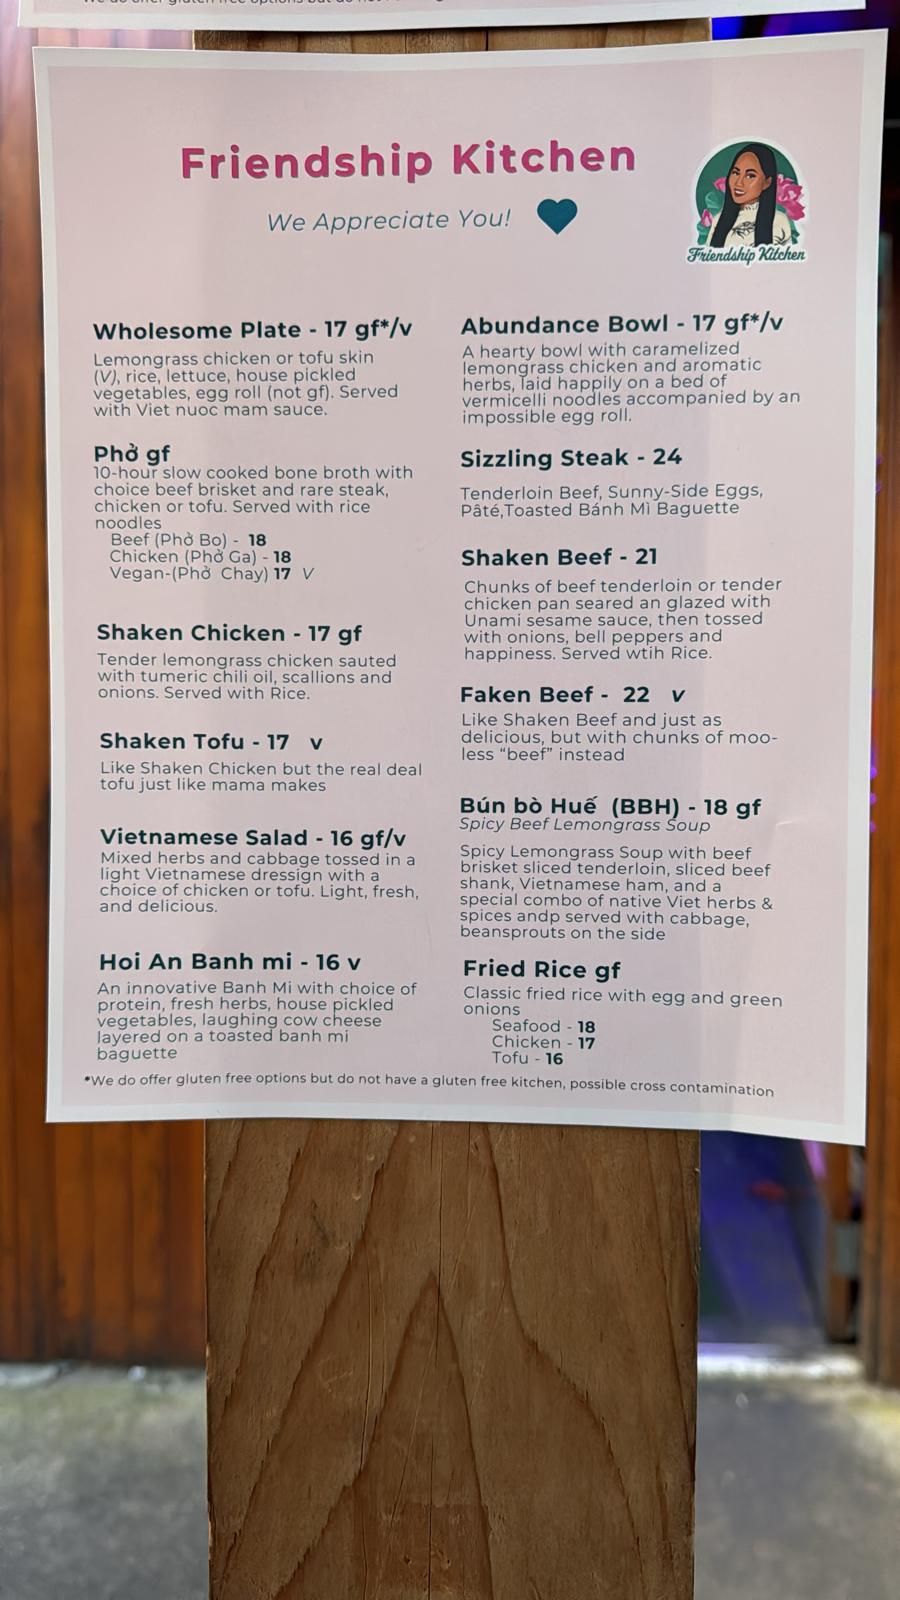 Friendship Kitchen
We Appreciate You!
Friendship Kitchen
Wholesome Plate - 17 gf*/v
Lemongrass chicken or tofu skin
(V), rice, lettuce, house pickled
vegetables, egg roll (not gf). Served
with Viet nuoc mam sauce.
Phở gf
10-hour slow cooked bone broth with
choice beef brisket and rare steak,
chicken or tofu. Served with rice
noodles
Beef (Phở Bo) - 18
Chicken (Phở Ga) - 18
Vegan-(Phở Chay) 17 V
Shaken Chicken - 17 gf
Tender lemongrass chicken sauted
with tumeric chili oil, scallions and
onions. Served with Rice.
Shaken Tofu - 17 v
Like Shaken Chicken but the real deal
tofu just like mama makes
Vietnamese Salad - 16 gf/v
Mixed herbs and cabbage tossed in a
light Vietnamese dressign with a
choice of chicken or tofu. Light, fresh,
and delicious.
Hoi An Banh mi - 16 v
An innovative Banh Mi with choice of
protein, fresh herbs, house pickled
vegetables, laughing cow cheese
layered on a toasted banh mi
baguette
Abundance Bowl - 17 gf*/v
A hearty bowl with caramelized
lemongrass chicken and aromatic
herbs, laid happily on a bed of
vermicelli noodles accompanied by an
impossible egg roll.
Sizzling Steak - 24
Tenderloin Beef, Sunny-Side Eggs,
Pâté,Toasted Bánh Mì Baguette
Shaken Beef - 21
Chunks of beef tenderloin or tender
chicken pan seared an glazed with
Unami sesame sauce, then tossed
with onions, bell peppers and
happiness. Served wtih Rice.
Faken Beef - 22 v
Like Shaken Beef and just as
delicious, but with chunks of moo-
less “beef” instead
Bún bò Huế (BBH) - 18 gf
Spicy Beef Lemongrass Soup
Spicy Lemongrass Soup with beef
brisket sliced tenderloin, sliced beef
shank, Vietnamese ham, and a
special combo of native Viet herbs &
spices andp served with cabbage,
beansprouts on the side
Fried Rice gf
Classic fried rice with egg and green
onions
Seafood - 18
Chicken - 17
Tofu - 16
*We do offer gluten free options but do not have a gluten free kitchen, possible cross contamination